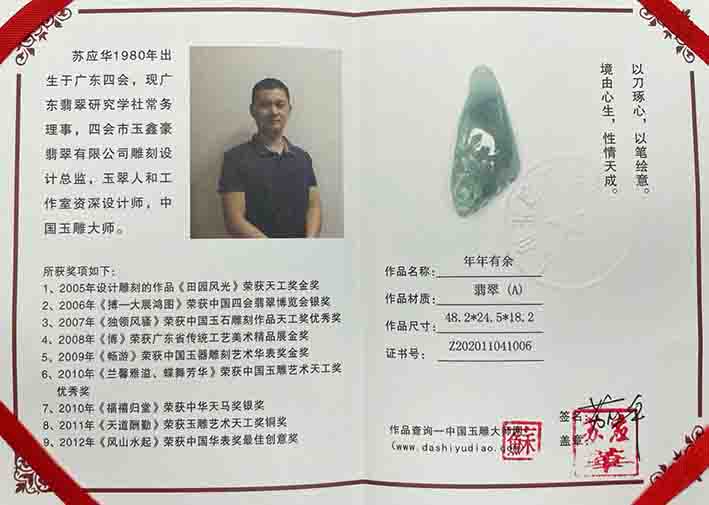 苏应华1980年出
生于广东四会，现广
东翡翠研究学社常务
理事，四会市玉鑫豪
翡翠有限公司雕刻设
计总监，玉翠人和工
作室资深设计师，中
国玉雕大师。
所获奖项如下：
1、2005年设计雕刻的作品《田园风光》荣获天工奖金奖
2、2006年《搏一大展鸿图》荣获中国四会翡翠博览会银奖
3、2007年《独领风骚》荣获中国玉石雕刻作品天工奖优秀奖
4、2008年《博》荣获广东省传统工艺美术精品展金奖
5、2009年《畅游》荣获中国玉器雕刻艺术华表奖金奖
6、2010年《兰馨雅溢、蝶舞芳华》荣获中国玉雕艺术天工奖
优秀奖
7、2010年《福禧归堂》荣获中华天马奖银奖
8、2011年《天道酬勤》荣获玉雕艺术天工奖铜奖
9、2012年《风山水起》荣获中国华表奖最佳创意奖
以刀琢心，以笔绘意。
境由心生，性情天成。
作品名称：年年有余
作品材质：翡翠（A）
作品尺寸：48.2*24.5*18.2
证书号：Z202011041006
签名：
盖章：
作品查询—中国玉雕大师网
(www.dashiyudiao.com)
蘇
苏应
華